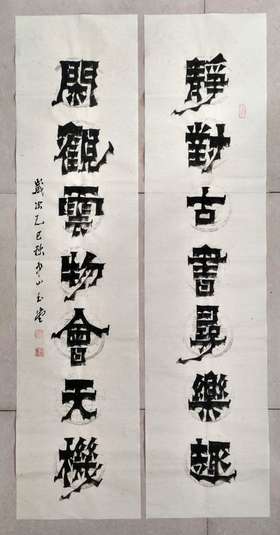 靜對古書尋樂趣
閑觀雲物會天機
歲次乙巳秋